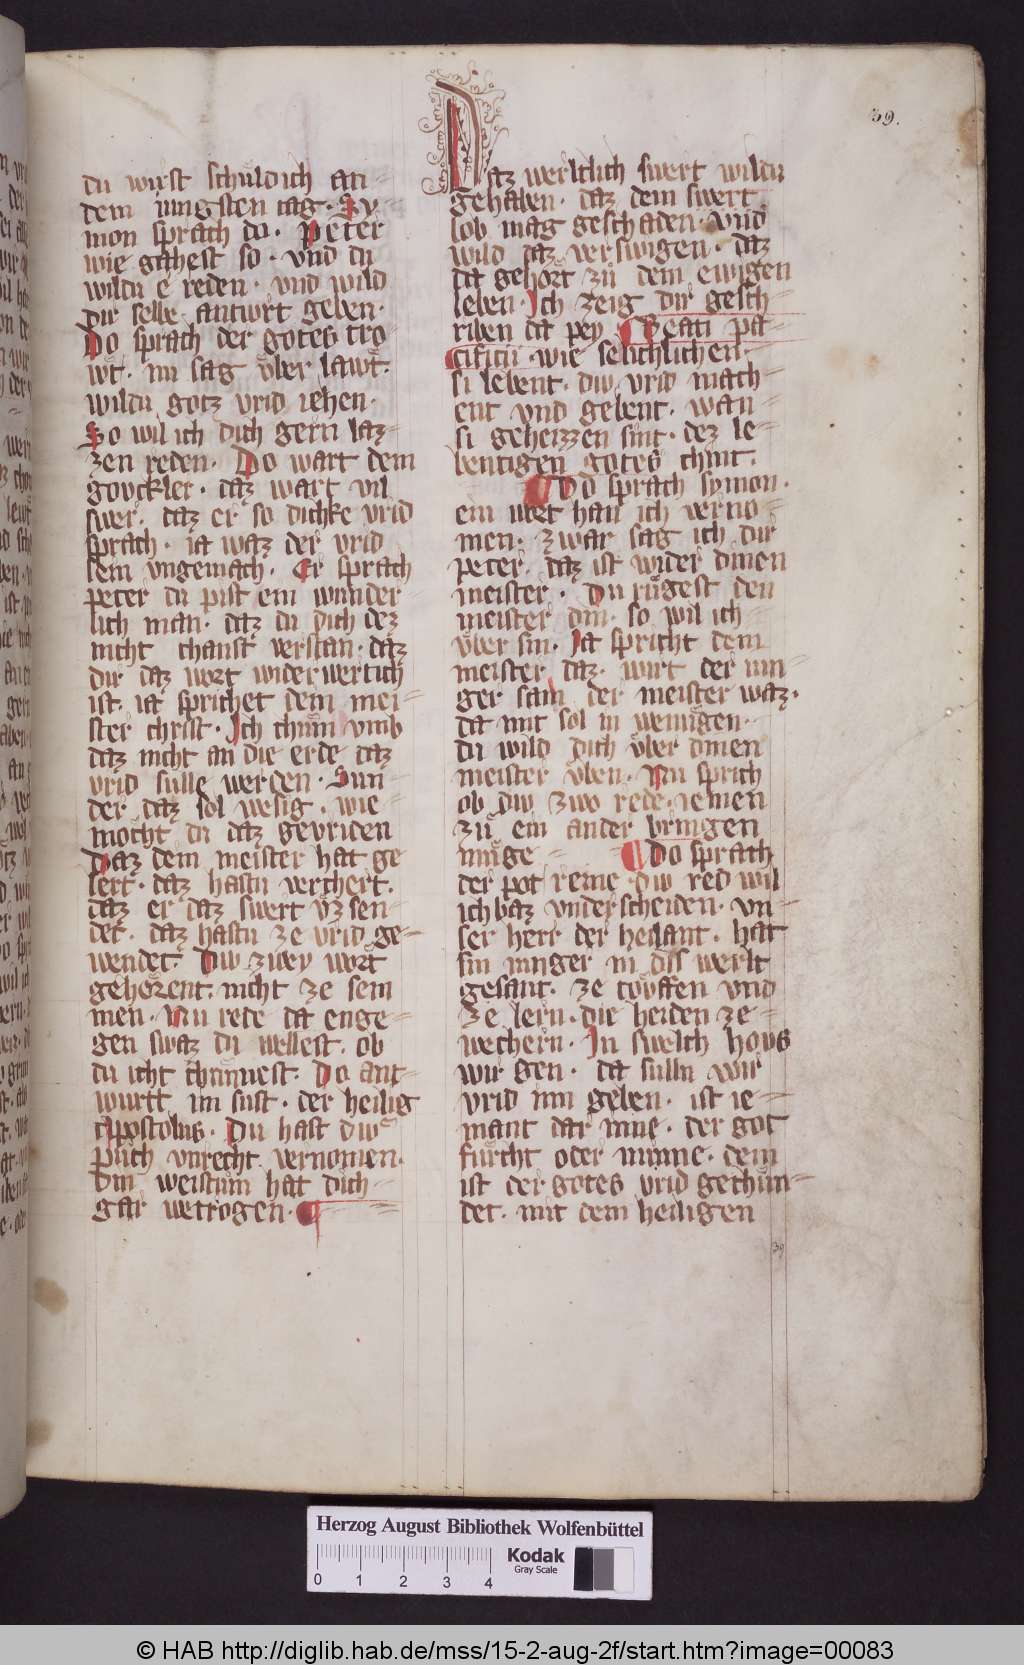 39.
du wirst schuldich an
dem iungsten tag. Sy
mon sprach da. Peter
wie gahest so. vnd du
wildu e reden. vnd wild
dir selbe antwrt geben.
Do sprach der gotes tro
wt. nu sag vber lawt.
wildu gotz vrid iehen.
So wil ich dich gern laz
zen reden. Do wart dem
gouckler. daz wart vil
swer. daz er so dichke vrid
sprach. ia waz der vrid
sein vngemach. Er sprach
peter du pist ein wunder
lich man. daz du dich dez
nicht chanst verstan. daz
dir daz wort widerwertich
ist. ia sprichet dem mei
ster christ. Ich chum vmb
daz nicht an die erde daz
vrid sulle werden. Sun
der daz sol wesig. wie
mocht du daz gevriden
Daz dem meister hat ge
lert. daz hastu verchert.
daz er daz swert vz sen
det. daz hastu ze vrid ge
wendet. Diw zwey wort
gehorent. nicht ze sem
men. Nu rede da enge
gen swaz du wellest. ob
du icht chunnest. Do ant
wurtt im sust. der heilig
apostolus. Du hast diw
puch vnrecht vernomen.
Din weistum hat dich
gar wetrogen.
Daz werltlich swert wildu
gehaben. daz dem swert
lob mag geschaden. vnd
wild daz verswigen. daz
da gehort zu dem ewigen
leben. Ich zeig dir gesch
riben da pey. Beati pa
cifici. wie selichlichen.
si lebent. diw vrid mach
ent vnd gebent. wan
si geheizzen sint. dez le
bentigen gotes chint.
Do sprach symon.
ein wet han ich verno
men. zwar sag ich dir
peter. daz ist wider dinen
meister. Du rugest den
meister din. so wil ich
vber sin. Ia spricht dem
meister daz. wirt der iun
ger sam der meister waz.
da mit sol in wenugen.
du wild dich vber dinen
meister vben. Nu sprich
ob diw zwo rede. iemen
zu ein ander bringen
muge Do sprach
der pot reine. diw red wil
ich baz vnderscheiden. vn
ser herr der heilant. hat
sin iunger in diss werlt
gesant. ze touffen vnd
ze lern. die heiden ze
wechern. In swelch hovs
wir gen. da sulln wir
vrid inn geben. ist ie
mant dar inne. der got
furcht oder minne. dem
ist der gotes vrid gechun
det. mit dem heiligen
39
Herzog August Bibliothek Wolfenbüttel
0 1 2 3 4
Kodak
Gray Scale
© HAB http://diglib.hab.de/mss/15-2-aug-2f/start.htm?image=00083